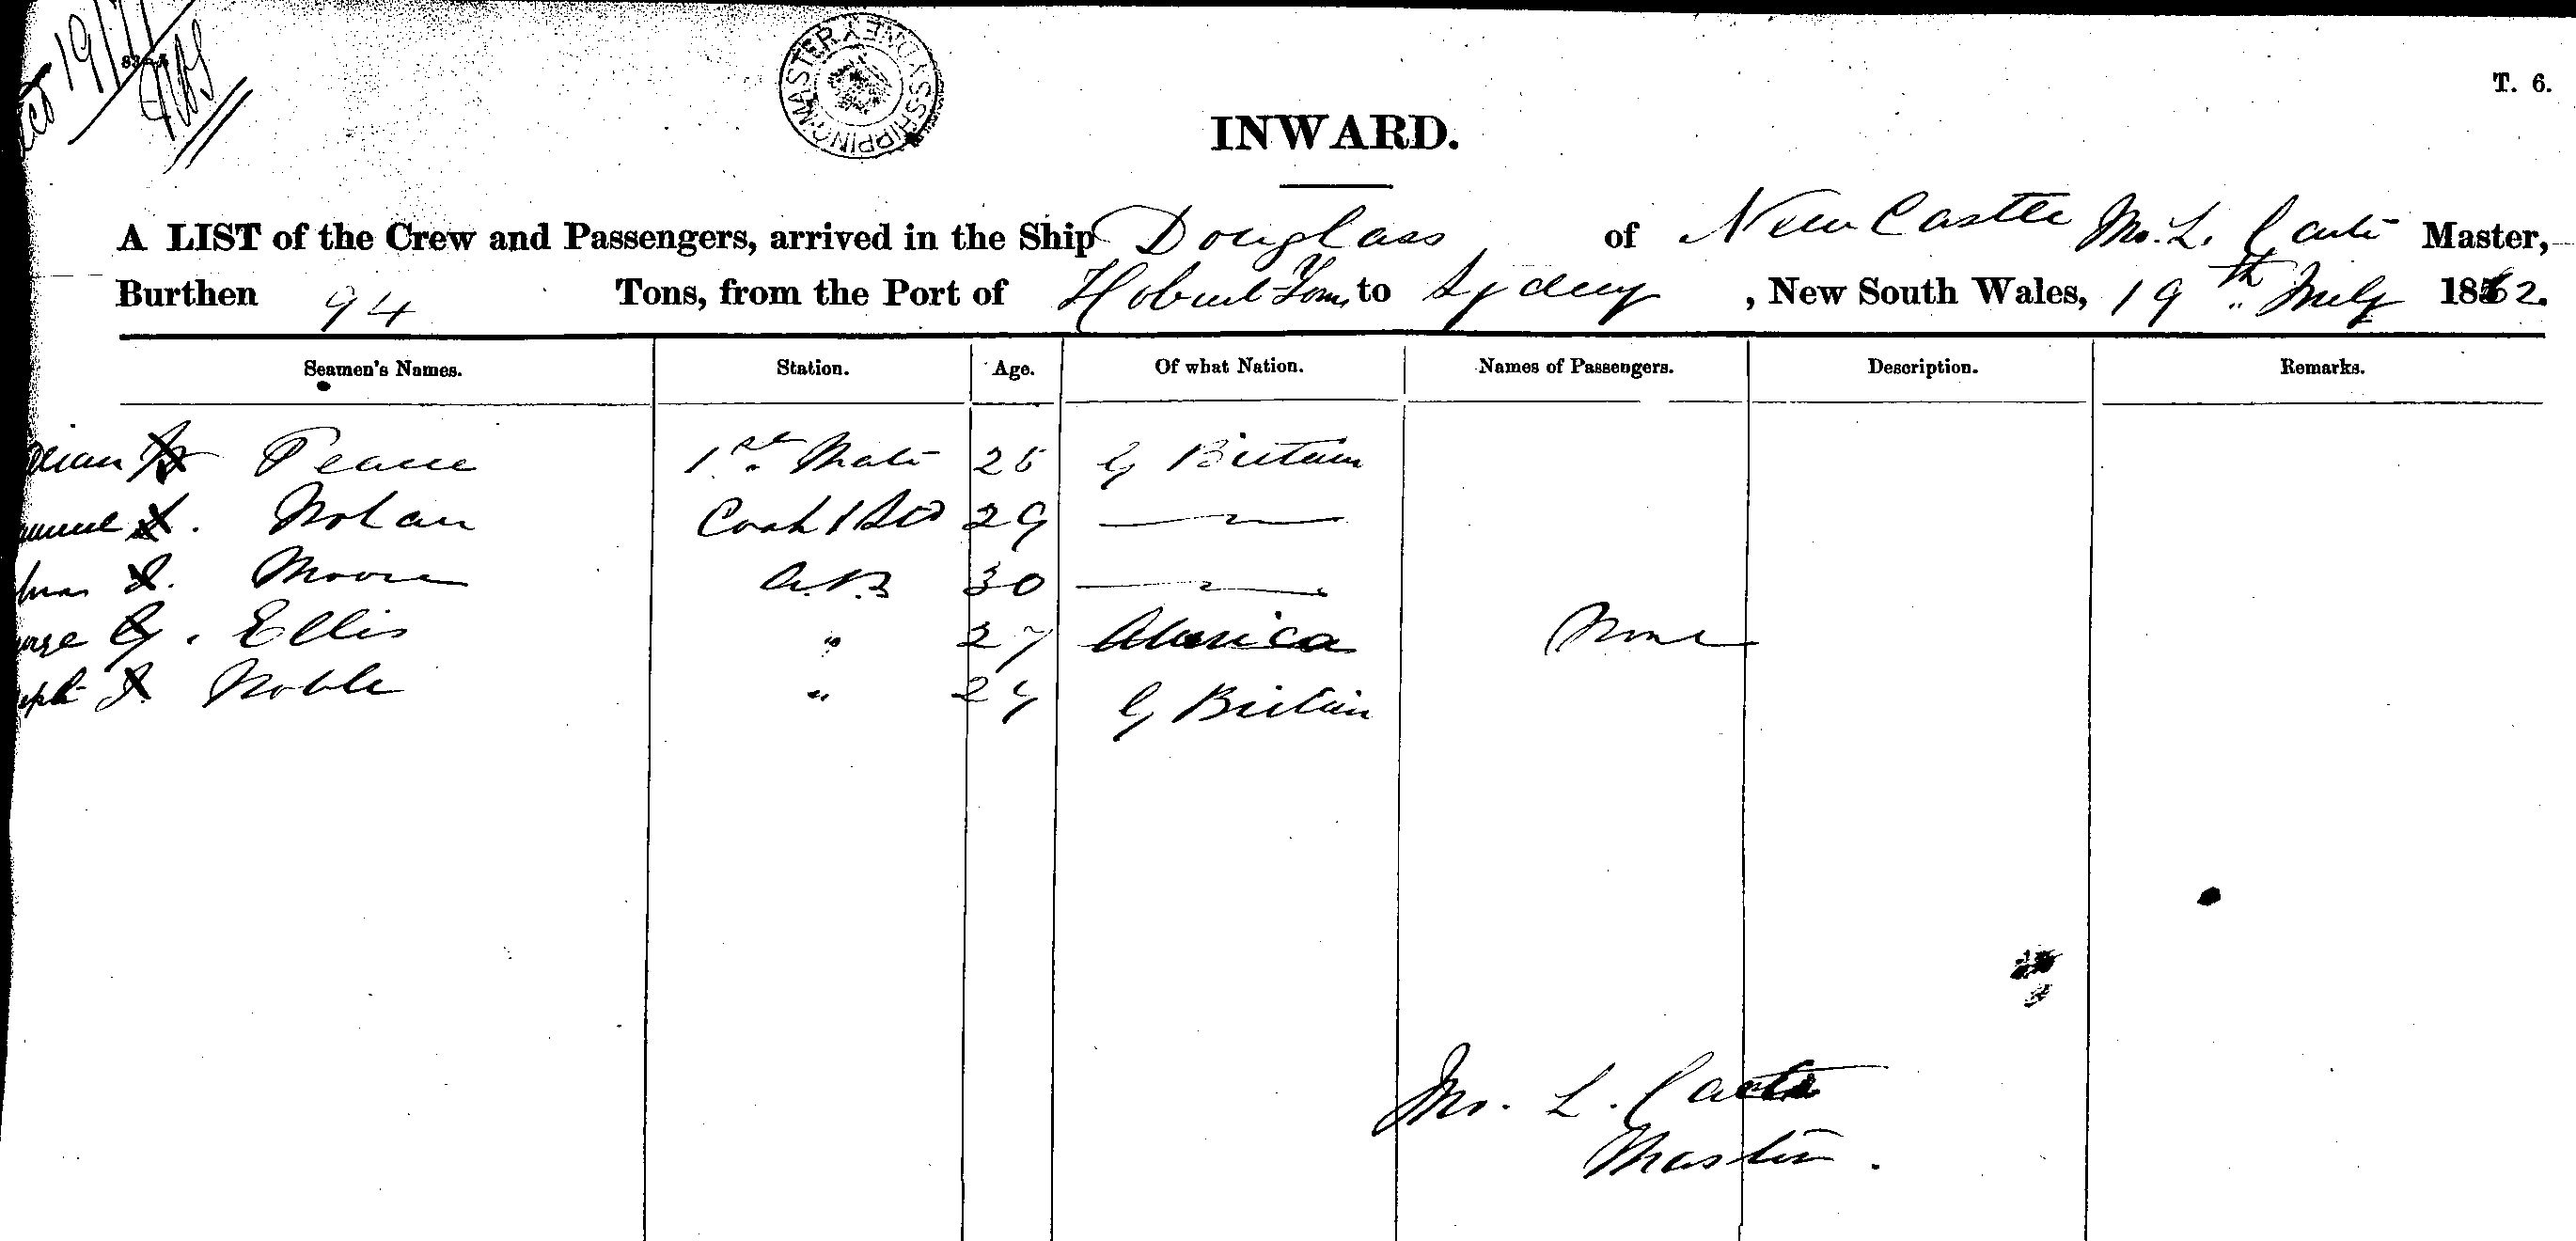 19/7
SHIPPING MASTER SYDNEY
T. 6.
INWARD.
A LIST of the Crew and Passengers, arrived in the Ship Douglass of New Castle Jno. L. Carter Master,
Burthen 94 Tons, from the Port of Hobart Town to Sydney, New South Wales, 19th July 1862.
Seamen's Names. Station. Age. Of what Nation. Names of Passengers. Description. Remarks.
Pearce 1st Mate 25 G Britain
Nolan Cook & Std 29
Moore A.B 30
Ellis " 27 America None
Noble " 24 G Britain
Jno. L. Carter
Master.